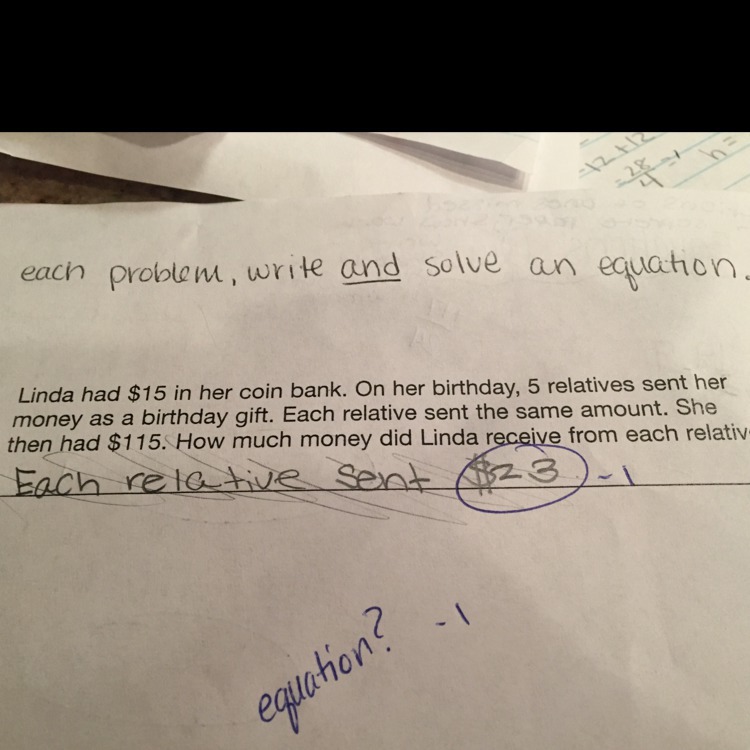 -12 +12
28
4
n =
each problem, write and solve an equation.
Linda had $15 in her coin bank. On her birthday, 5 relatives sent her
money as a birthday gift. Each relative sent the same amount. She
then had $115. How much money did Linda receive from each relativ
Each relative sent $23 -1
equation? -1